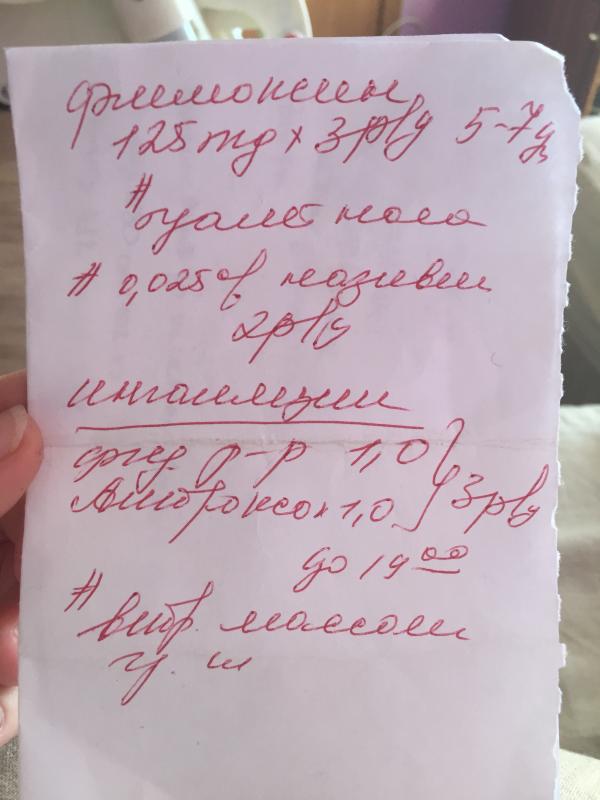 флемоксин
125 mg x 3 р/д 5-7д
# туалет носа
# 0,025% називин
2р/д
ингаляции
физ р-р 1,0
Амброксол 1,0 } 3р/д
до 19 00
# вибр. массаж